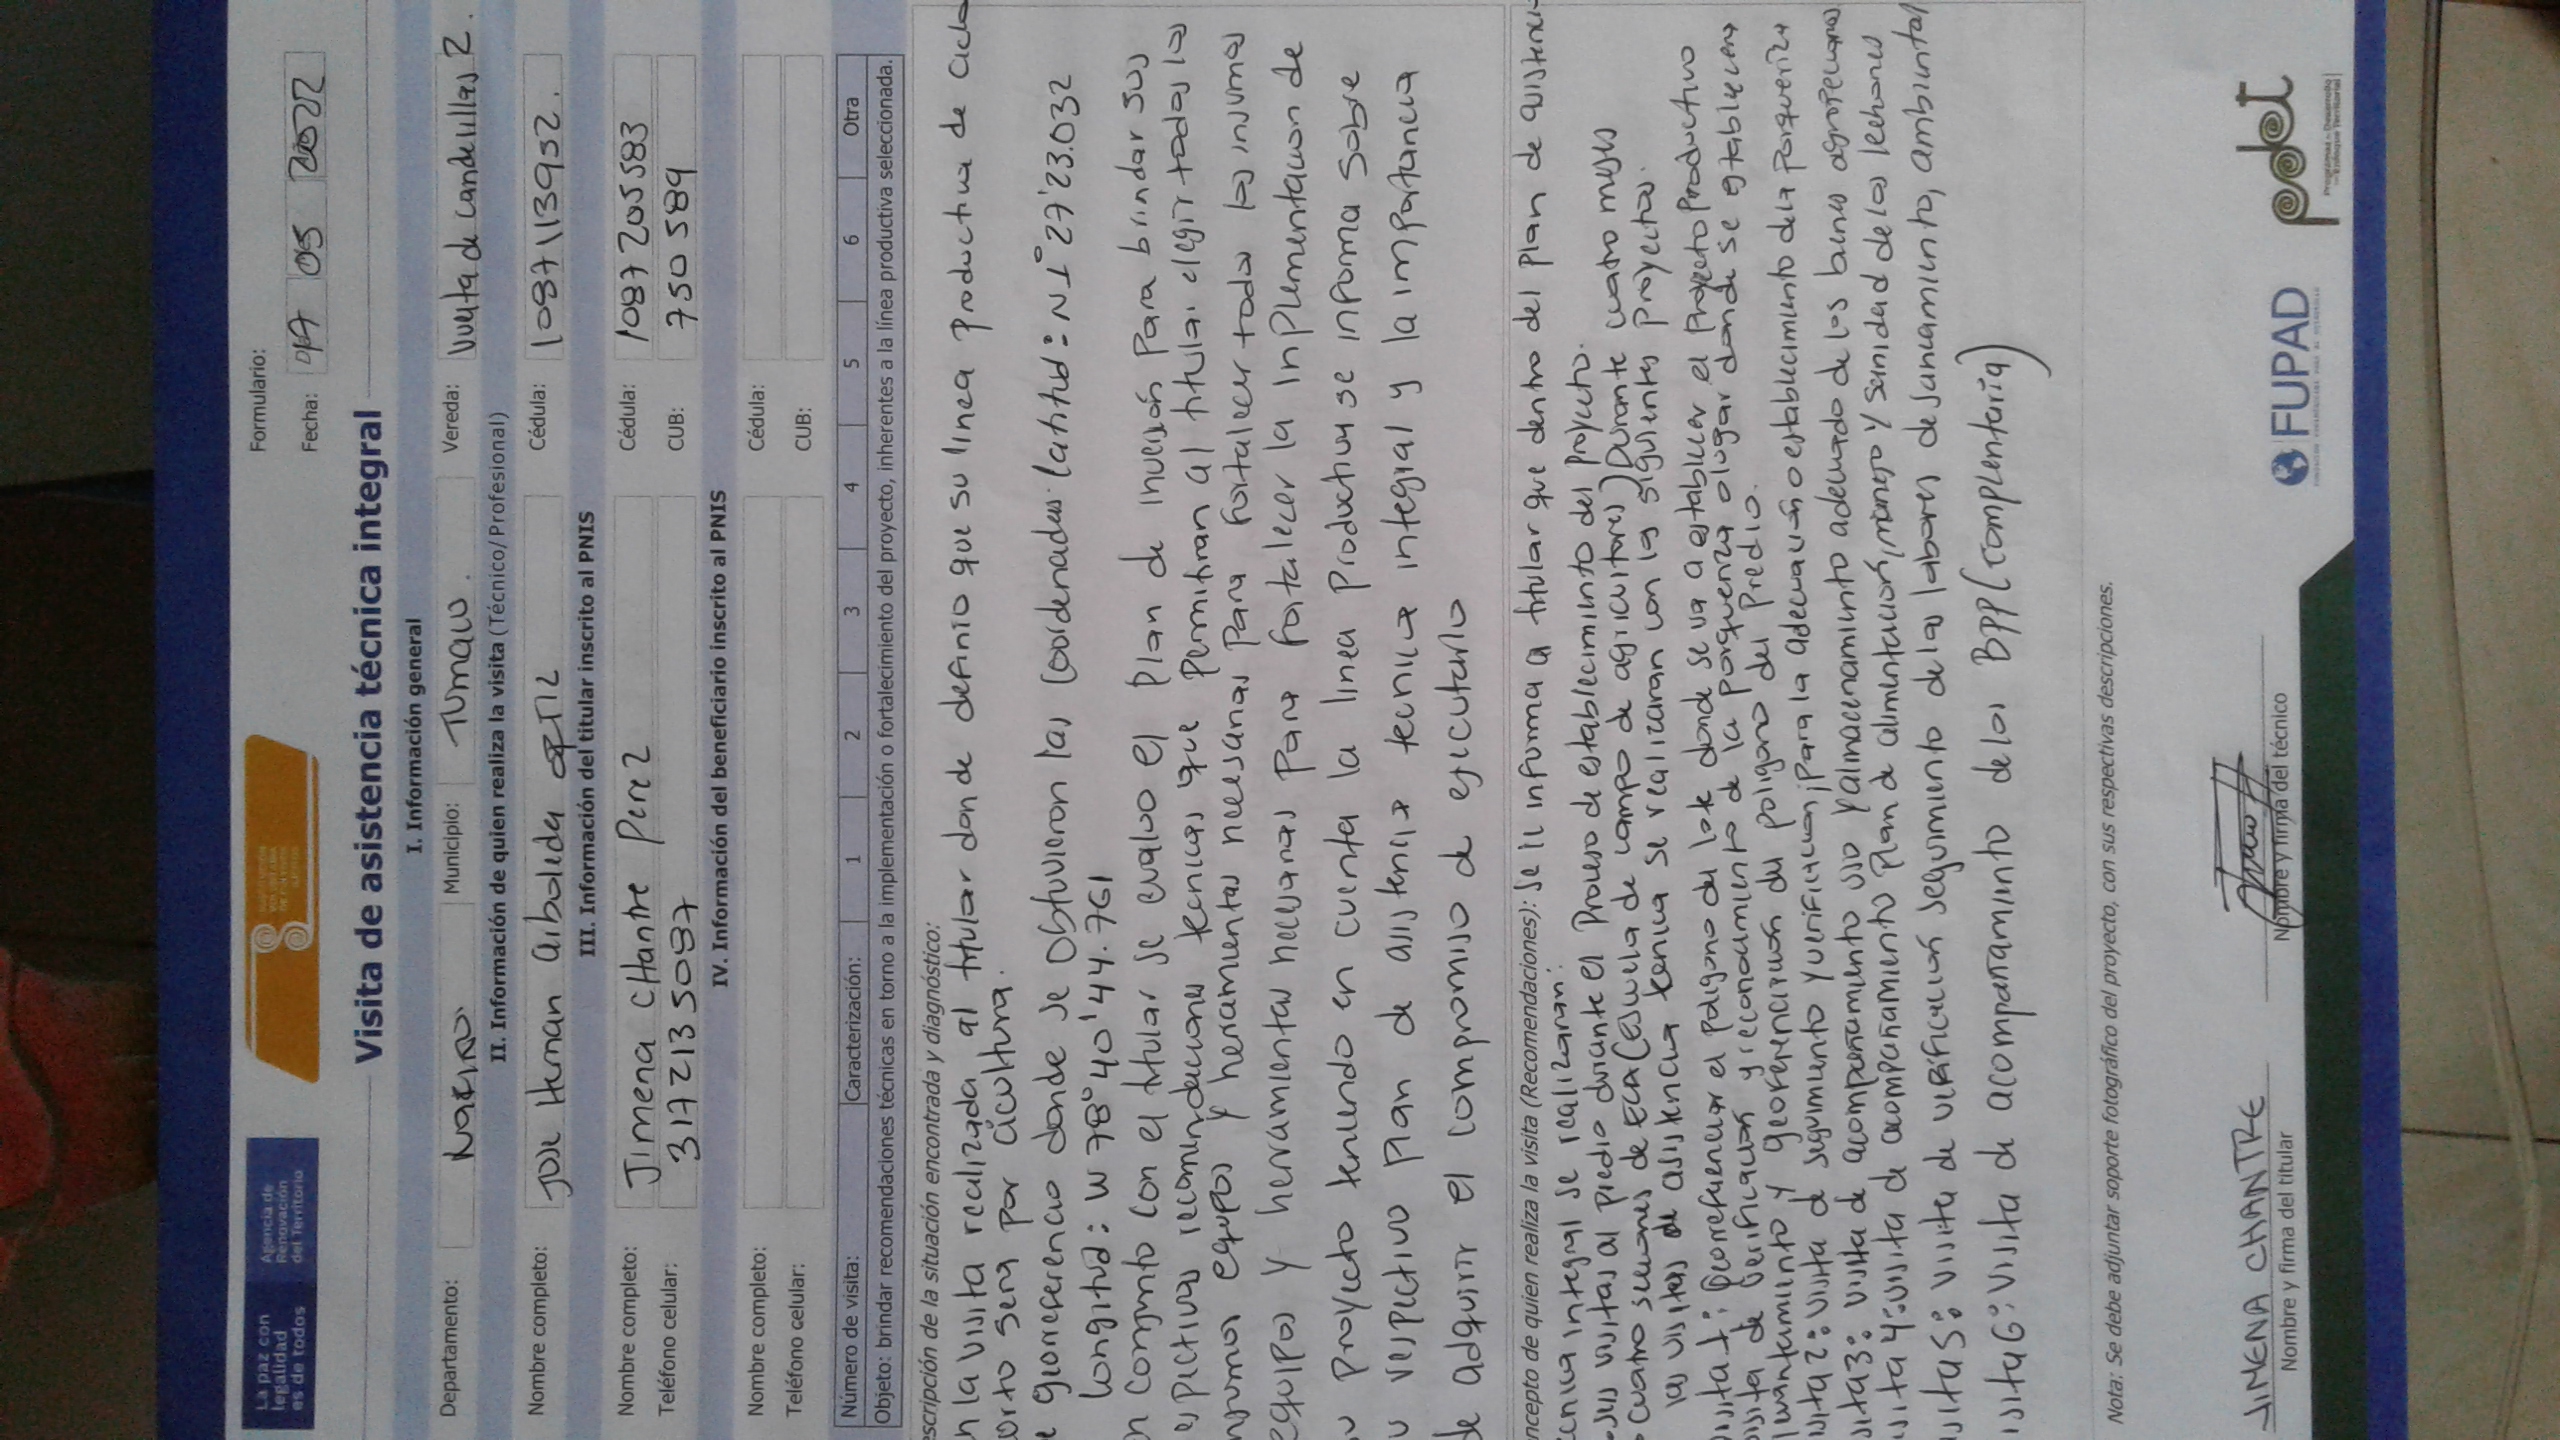 La paz con
legalidad
es de todos
Agencia de
Renovación
del Territorio
Formulario:
Fecha: 05 2022
Visita de asistencia técnica integral
I. Información general
Departamento: Nariño Municipio: Tumaco. Vereda: Vuelta de Candelillas 2.
II. Información de quien realiza la visita (Técnico/ Profesional)
Nombre completo: Jose Hernan arboleda ortiz Cédula: 1087113952.
III. Información del titular inscrito al PNIS
Nombre completo: Jimena CHantre Perez Cédula: 1087205583
Teléfono celular: 3172135087 CUB: 750589
IV. Información del beneficiario inscrito al PNIS
Nombre completo: Cédula:
Teléfono celular: CUB:
Número de visita: Caracterización: 1 2 3 4 5 6 Otra
Objeto: brindar recomendaciones técnicas en torno a la implementación o fortalecimiento del proyecto, inherentes a la línea productiva seleccionada.
escripción de la situación encontrada y diagnóstico:
n la visita realizada al titular donde definio que su linea productiva de ciclo
orto sera por cicultura.
e georeferencio donde se obtuvieron las coordenadas: latitud: N1°27'23.032
longitud: W 78°40'44.761
n conjunto con el titular se evaluo el plan de inversión para brindar sus
espectivas recomendaciones tecnicas que permitiran al titular elegir todos los
nsumos equipos y herramientas necesarias para fortalecer todos los insumos
equipos y herramientas necesarias para fortalecer la inplementacion de
u proyecto teniendo en cuenta la linea productiva se informa sobre
u respectivo plan de asistencia tecnica integral y la importancia
de adquirir el compromiso de ejecutarlo
oncepto de quien realiza la visita (Recomendaciones): se le informa al titular que dentro del plan de asistencia
tecnica integral se realizaran:
seis visitas al predio durante el proceso de establecimiento del proyecto.
cuatro sesiones de ECA (escuela de campo de agricultores) Durante cuatro meses
las visitas de asistencia tecnica se realizaran con los siguientes proyectos.
visita 1: georefenciar el poligono del lote donde se va a establecer el proyecto productivo
visita de verificacion y reconocimiento de la porqueriza o lugar donde se establecera
levantamiento y georeferencirción del poligono del predio.
isita 2: visita de seguimiento y verificacion; para la adecuación o establecimiento de la porqueriza
isita 3: visita de acompañamiento uso y almacenamiento adecuado de los bienes agropecuarios
isita 4: visita de acompañamiento plan de alimentacion, manejo y sanidad de los lechones
isita 5: visita de verificación seguimiento de las labores de saneamiento, ambiental
isita 6: visita de acompañamiento de los BPP (complentaria)
Nota: Se debe adjuntar soporte fotográfico del proyecto, con sus respectivas descripciones.
JIMENA CHANTRE
Nombre y firma del titular
Nombre y firma del técnico
FUPAD
pdet
Programas de Desarrollo
con Enfoque Territorial